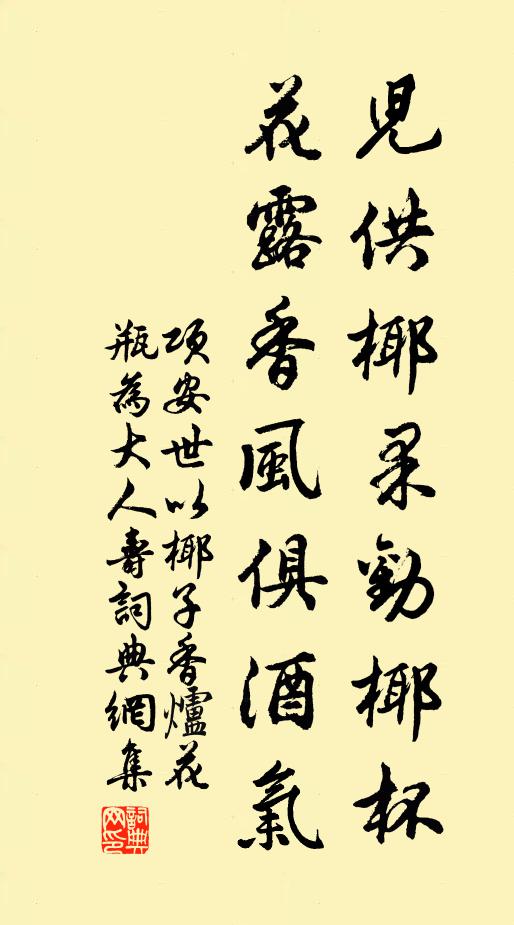 兒供椰果勸椰杯
花露香風俱酒氣
項安世以椰子香爐花
瓶為大人壽詞典網集
詞典网印